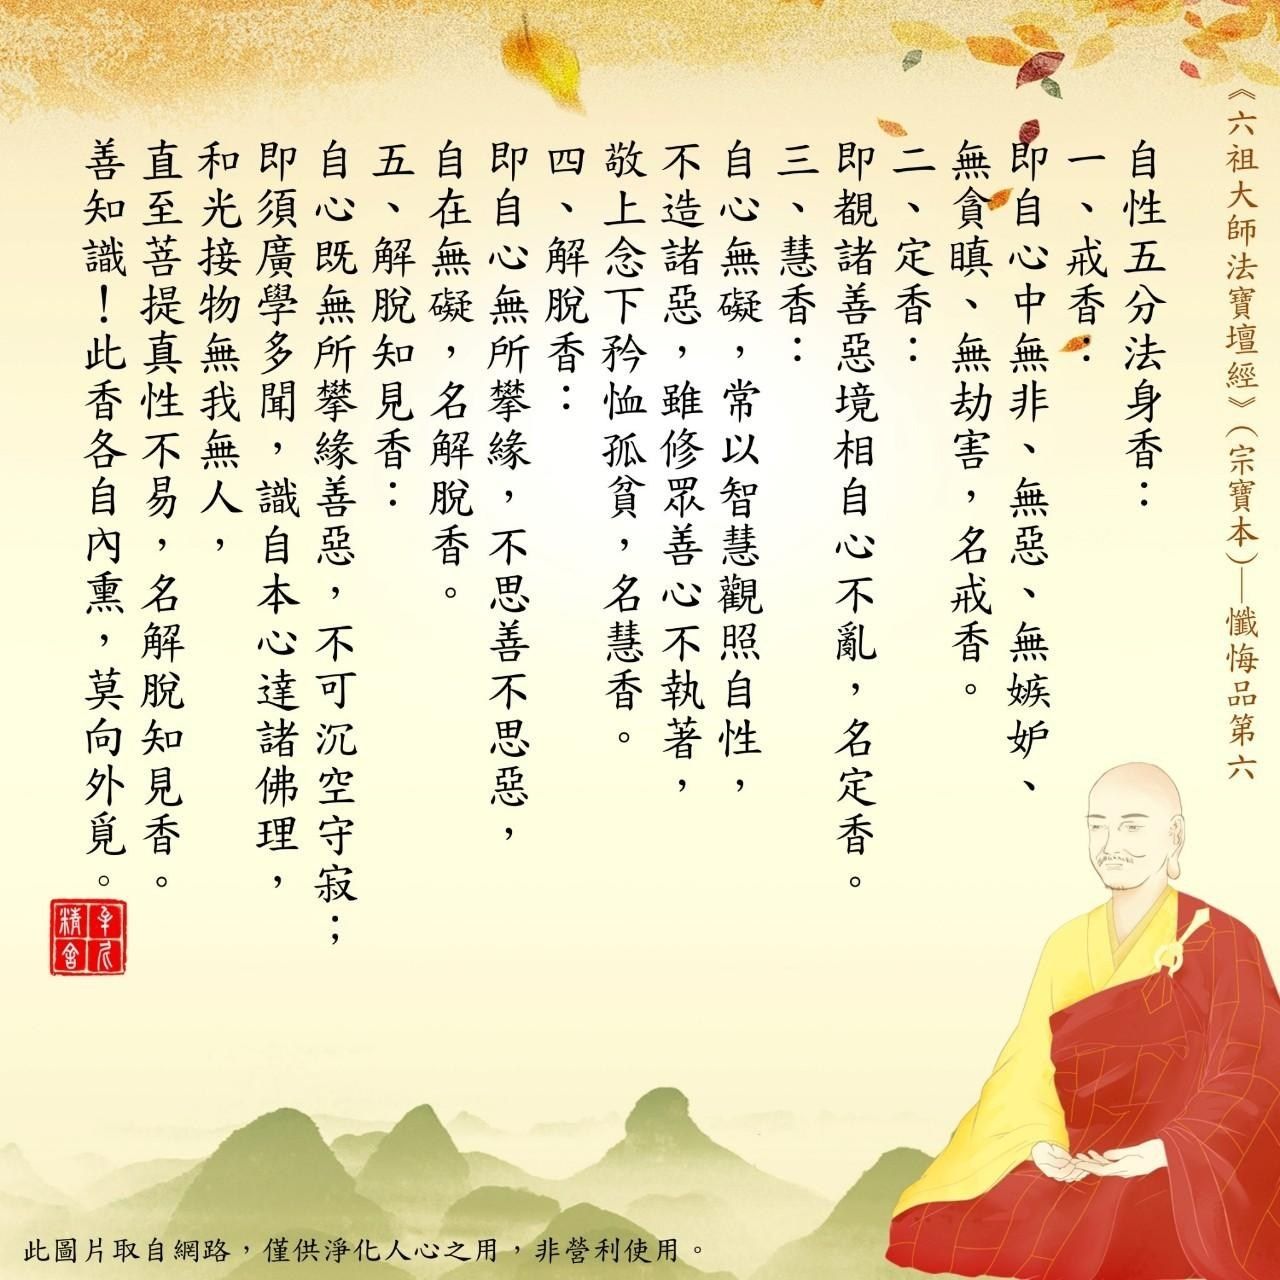 《六祖大師法寶壇經》(宗寶本)—懺悔品第六
自性五分法身香：
一、戒香：
即自心中無非、無惡、無嫉妒、
無貪瞋、無劫害，名戒香。
二、定香：
即覩諸善惡境相自心不亂，名定香。
三、慧香：
自心無礙，常以智慧觀照自性，
不造諸惡，雖修眾善心不執著，
敬上念下矜恤孤貧，名慧香。
四、解脫香：
即自心無所攀緣，不思善不思惡，
自在無礙，名解脫香。
五、解脫知見香：
自心既無所攀緣善惡，不可沉空守寂；
即須廣學多聞，識自本心達諸佛理，
和光接物無我無人，
直至菩提真性不易，名解脫知見香。
善知識！此香各自內熏，莫向外覓。
精舍
此圖片取自網路，僅供淨化人心之用，非營利使用。